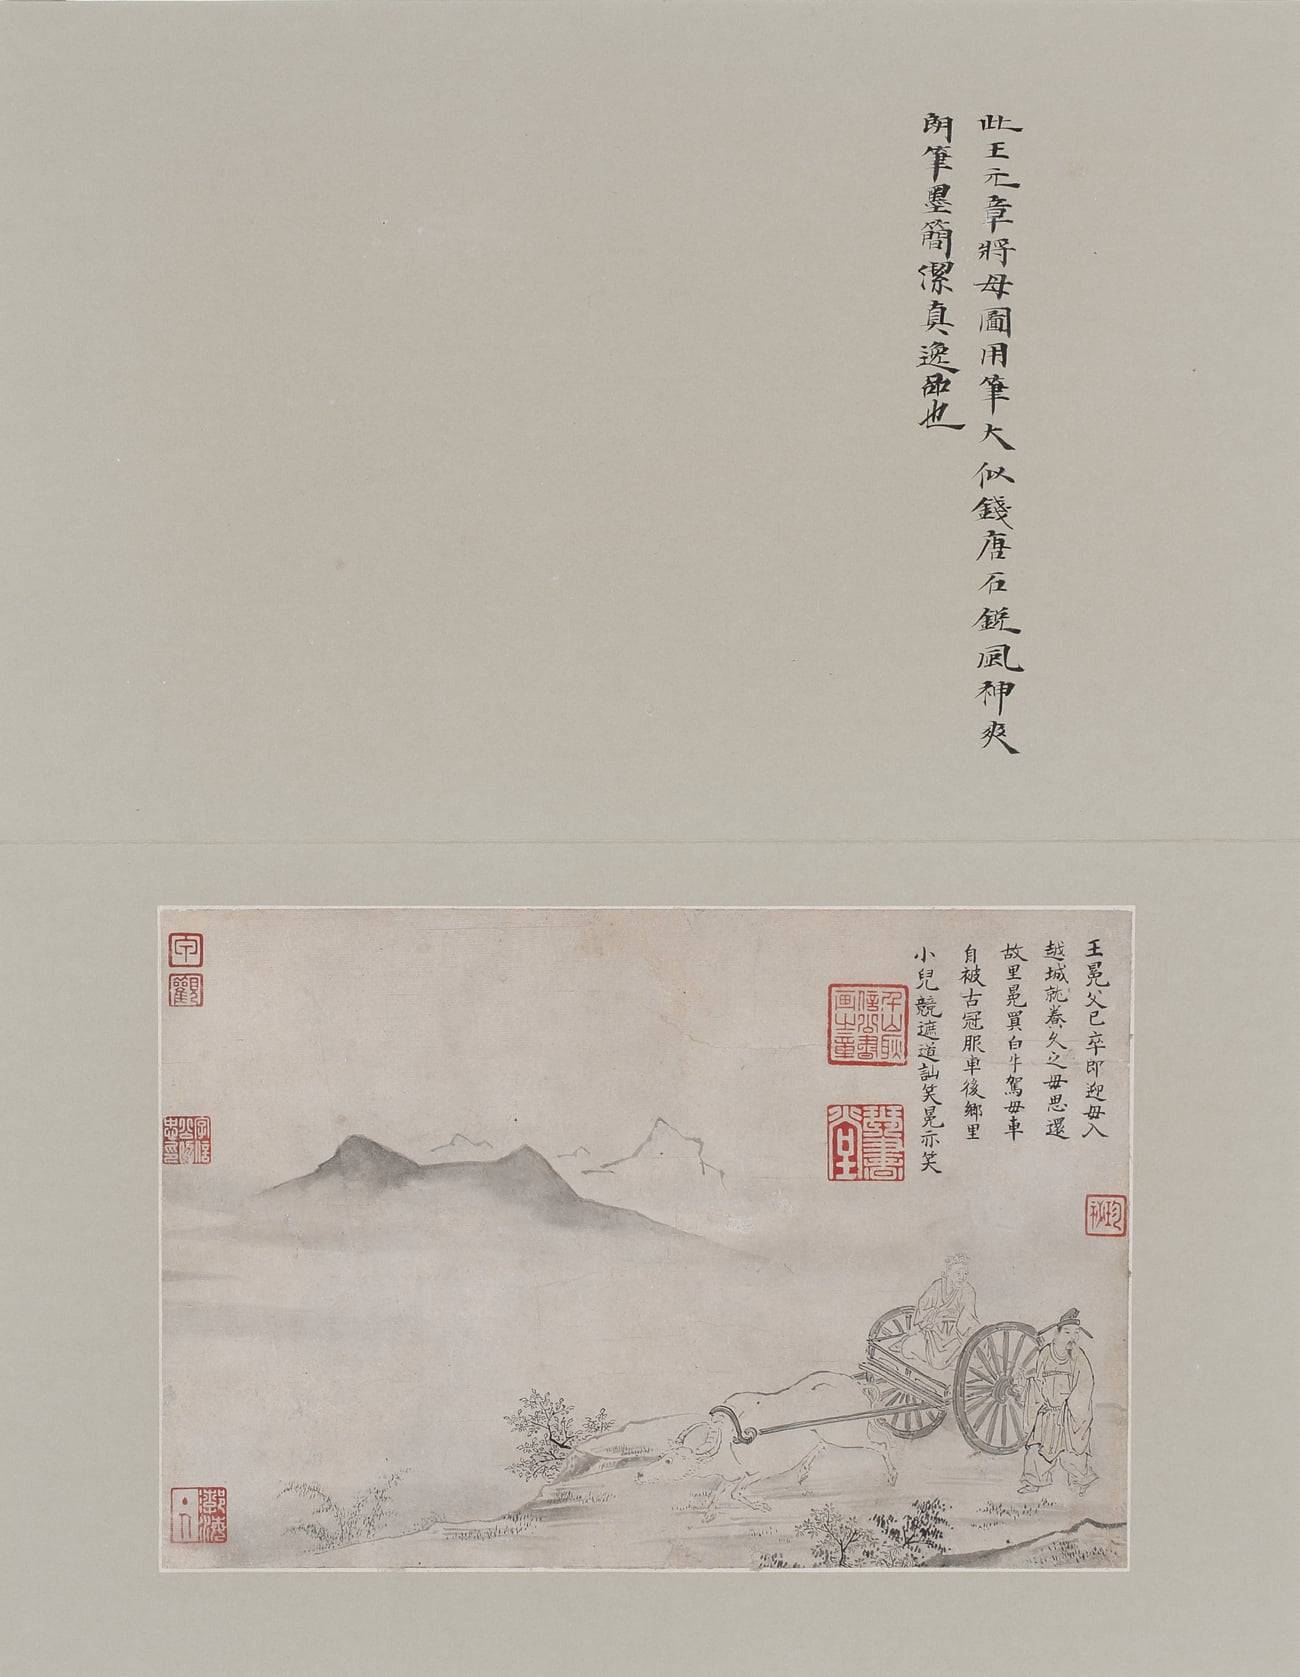 此王元章將母圖用筆大似錢唐石銳風神爽
朗筆墨簡潔真逸品也
王冕父已卒即迎母入
越城就養久之母思還
故里冕買白牛駕母車
自被古冠服車後鄉里
小兒競遮道訕笑冕亦笑
千山耿
信公書
画之章
琴書
堂
珍
祕
宗
觀